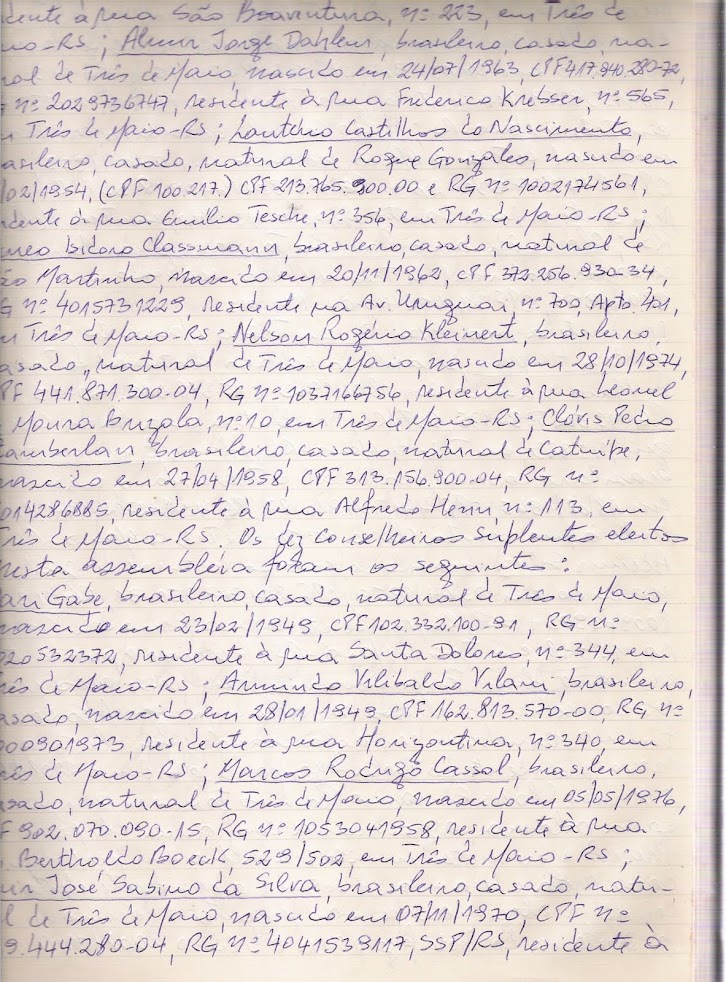 dente à rua São Boaventura, nº 223, em Três de
io-RS; Almir Jorge Dahlem, brasileiro, casado, na-
ral de Três de Maio, nascido em 24/07/1963, CPF 417.940.280-72,
nº 2029736747, residente à rua Frederico Krebser, nº 565,
Três de Maio-RS; Castilhos do Nascimento,
asileiro, casado, natural de Roque Gonzales, nascido em
/02/1954, (CPF 100.217.) CPF 213.765.900.00 e RG nº 1002174561,
idente à rua Emílio Tesche, nº 356, em Três de Maio-RS;
Isidoro Classmann, brasileiro, casado, natural de
ão Martinho, nascido em 20/11/1962, CPF 372.256.930-34,
G nº 4015731229, residente na Av. Uruguai, nº 700, Apto. 401,
m Três de Maio-RS; Nelson Rogério Kleinert, brasileiro,
asado, natural de Três de Maio, nascido em 28/10/1974,
PF 441.871.300-04, RG nº 1037166756, residente à rua Leonel
Moura Brizola, nº 10, em Três de Maio-RS; Clóvis Pedro
amberlan, brasileiro, casado, natural de Catuipe,
nascido em 27/04/1958, CPF 313.156.900-04, RG nº
014286885, residente à rua Alfredo Henn, nº 113, em
Três de Maio-RS. Os dez Conselheiros suplentes eleitos
nesta assembléia foram os seguintes:
Gabe, brasileiro, casado, natural de Três de Maio,
nascido em 23/02/1949, CPF 102.332.100-91, RG nº
020532372, residente à rua Santa Dolores, nº 344, em
rês de Maio-RS; Armindo Vilibaldo Vilani, brasileiro,
asado, nascido em 28/01/1949, CPF 162.813.570-00, RG nº
000901973, residente à rua Horizontina, nº 340, em
rês de Maio-RS; Marcos Rodrigo Cassol, brasileiro,
asado, natural de Três de Maio, nascido em 05/05/1976,
F 902.070.090-15, RG nº 1053041958, residente à rua
Bertholdo Boeck, 529/502, em Três de Maio-RS;
José Sabino da Silva, brasileiro, casado, natu-
l de Três de Maio, nascido em 07/11/1970, CPF nº
9.444.280-04, RG nº 4041539117, SSP/RS, residente à